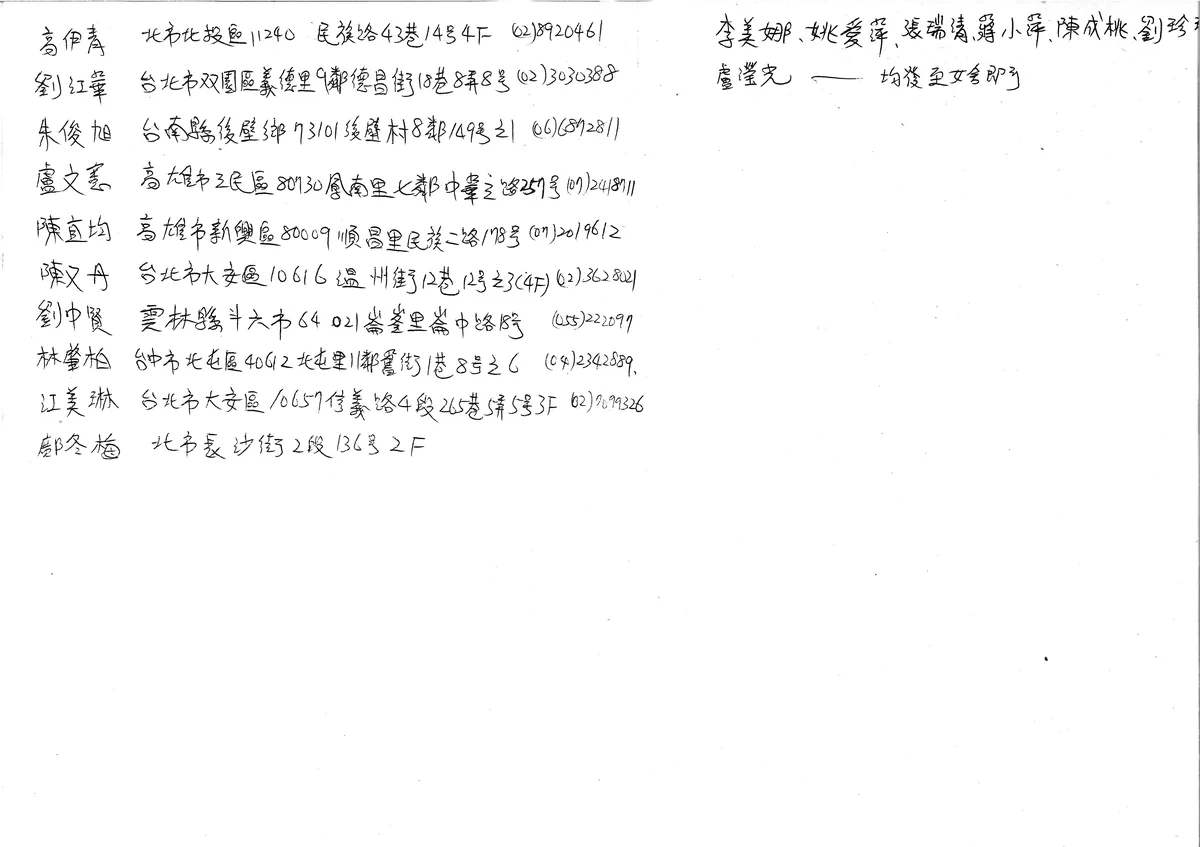 高伊青 北市北投區11240 民族路43巷14号4F (02)8920461
劉江華 台北市双園區義德里9鄰德昌街18巷8弄8号(02)3030388
朱俊旭 台南縣後壁鄉73101後壁村8鄰149号之1 (06)6872811
盧文憲 高雄市三民區80730鳳南里七鄰中華三路257号(07)2418711
陳宜均 高雄市新興區80009順昌里民族二路178号(07)2019612
陳又丹 台北市大安區10616溫州街12巷12号之3(4F)(02)3628021
劉中賢 雲林縣斗六市64021崙峯里崙中路18号 (055)222097
林肇柏 台中市北屯區40612北屯里11鄰舊街1巷8号之6 (04)2342889.
江美琳 台北市大安區10657信義路4段265巷5弄5号3F (02)7099326
鄢冬梅 北市長沙街2段136号2F
李美娜、姚愛萍、張瑞清、蔣小萍、陳成桃、劉珍
盧瀅光 —— 均後至女舍即可